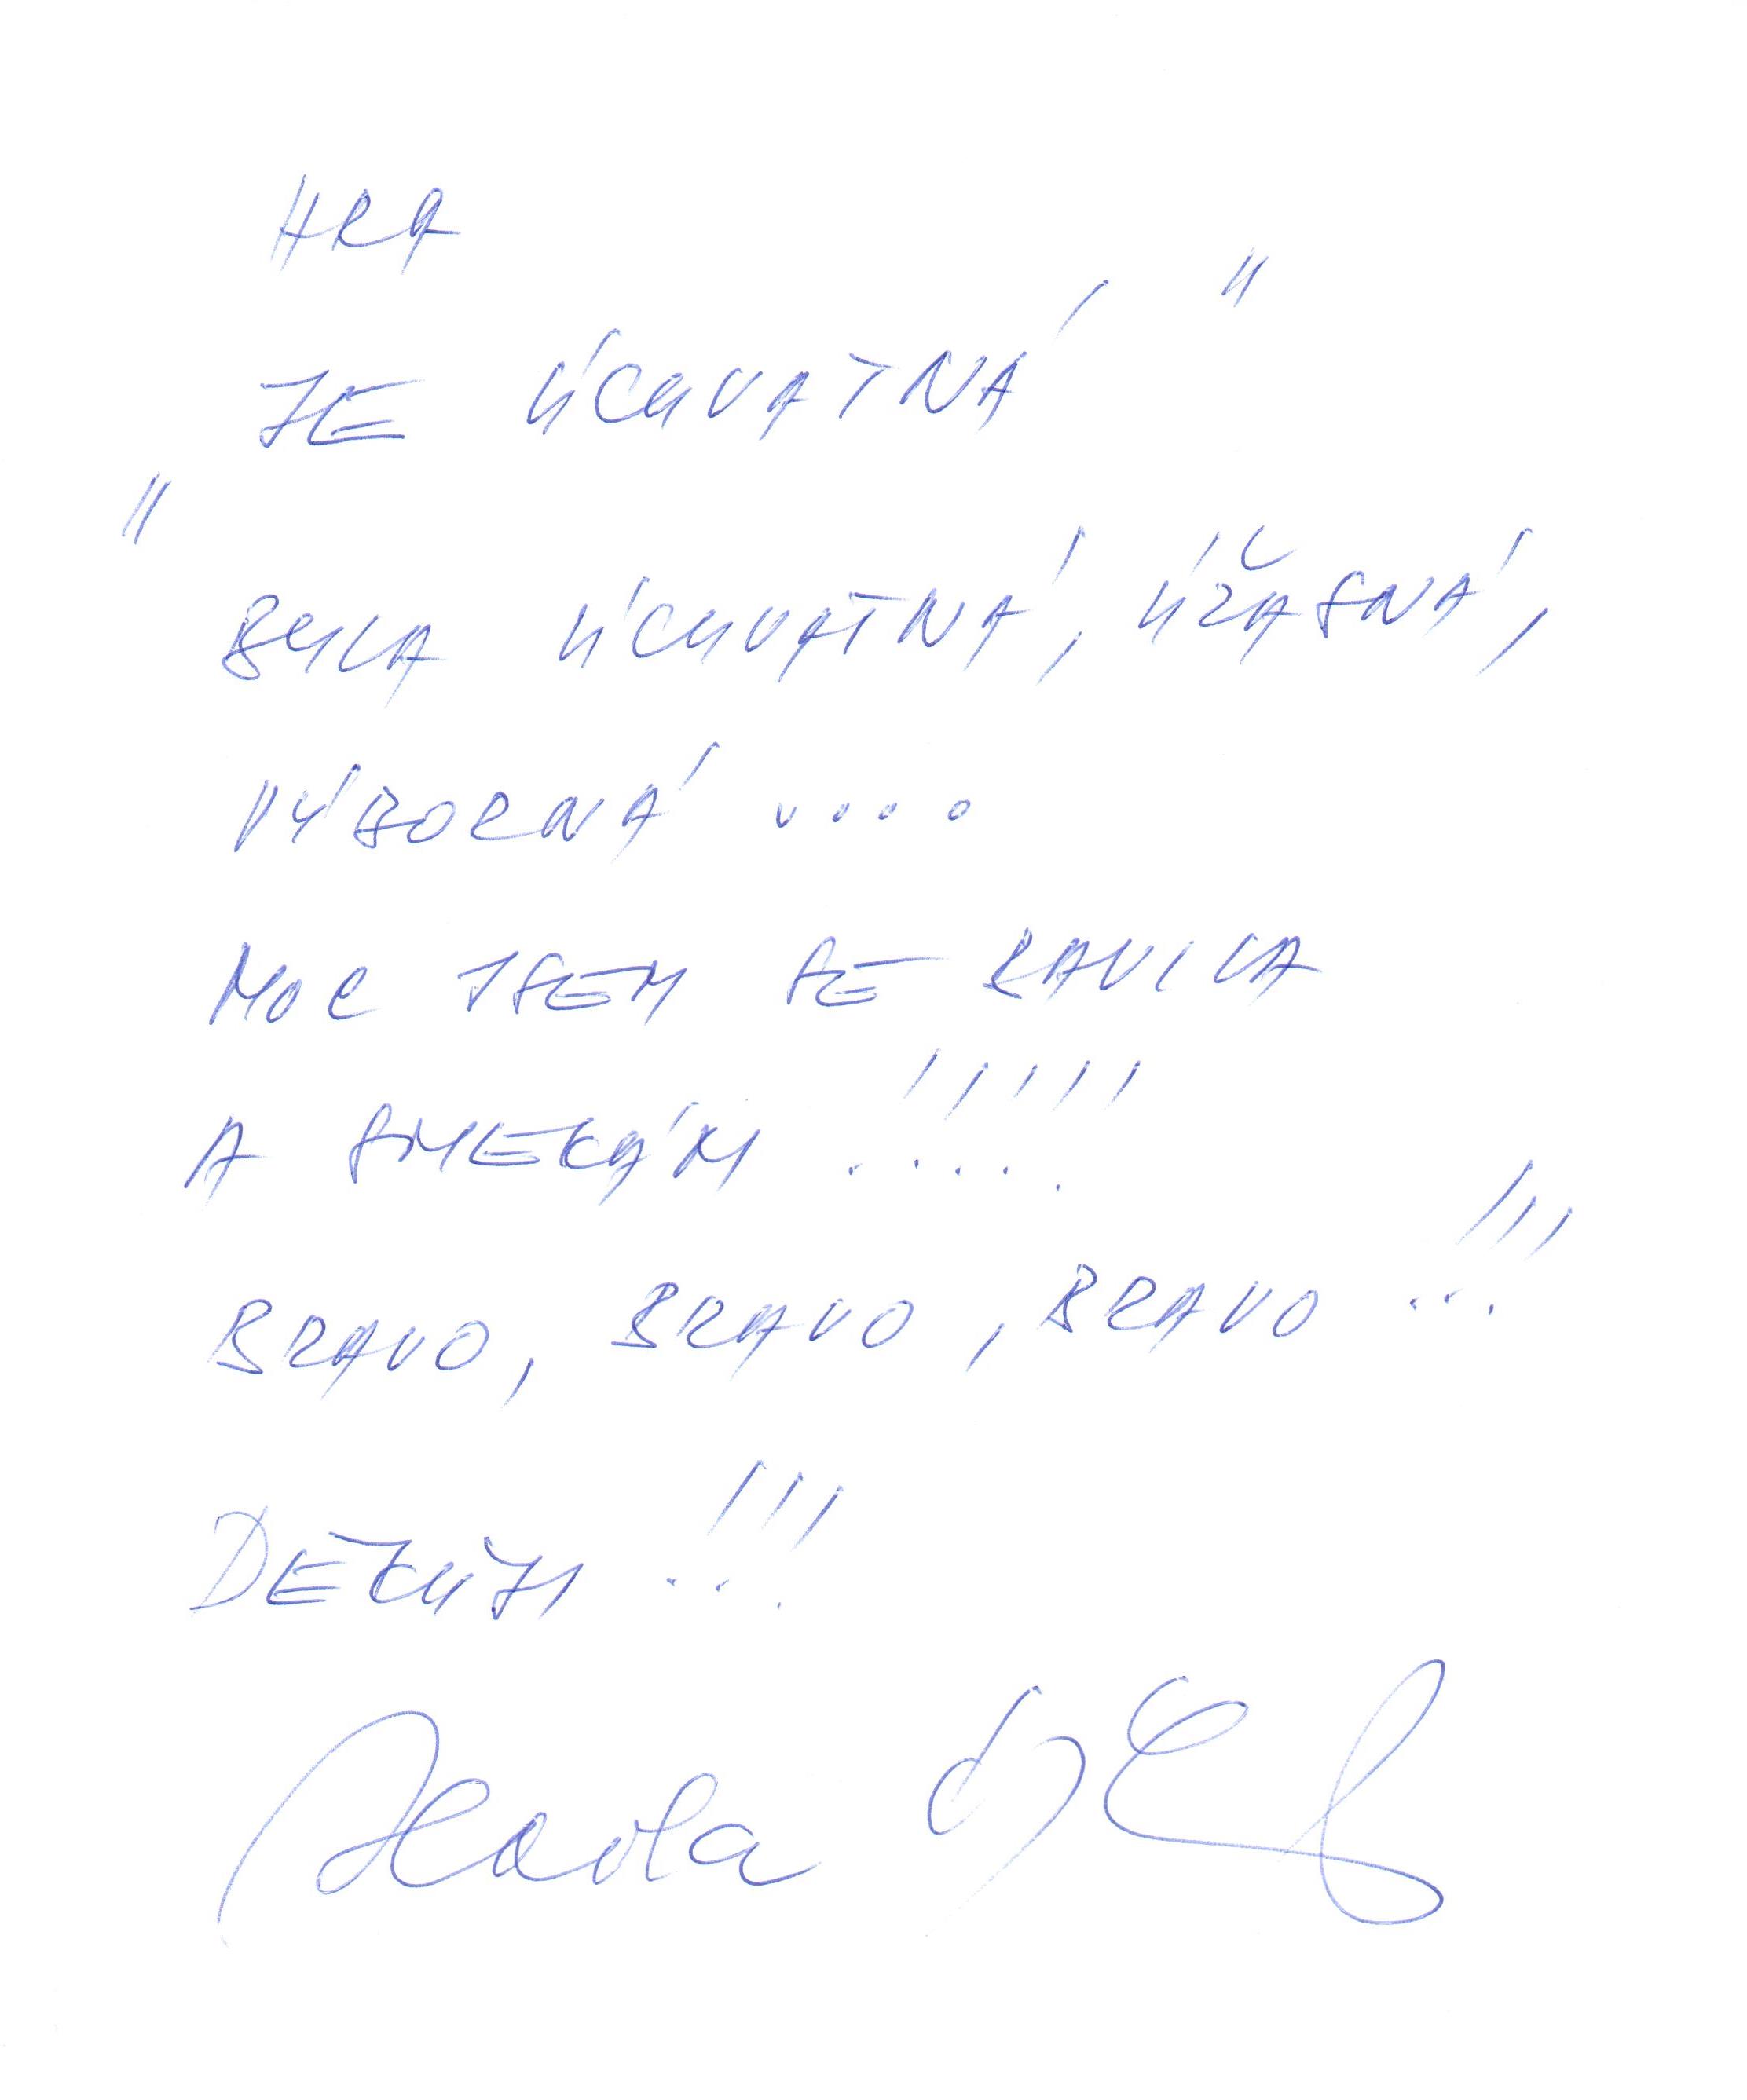 HRA
JE ÚCHVATNÁ "
"
BYLA ÚCHVATNÁ, ÚŽASNÁ,
VÝBORNÁ ....
MOC JSEM SE BAVILA
A SMEKÁM !!!!!
BRAVO, BRAVO, BRAVO !!!
DEKUJI !!!